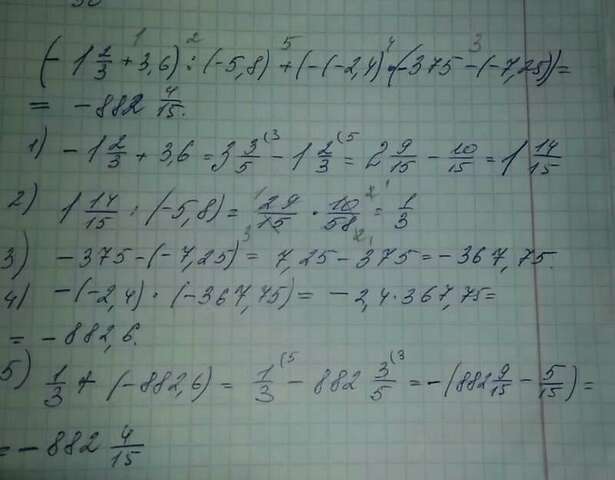 (-1 2/3 + 3,6) : (-5,8) + (-(-2,4) · (-375 - (-7,25)) =
= -882 4/15.
1) -1 2/3 + 3,6 = 3 3/5 - 1 2/3 = 2 9/15 - 10/15 = 1 14/15
2) 1 14/15 : (-5,8) = 29/15 · 10/58 = 1/3
3) -375 - (-7,25) = 7,25 - 375 = -367,75.
4) -(-2,4) · (-367,75) = -2,4 · 367,75 =
= -882,6.
5) 1/3 + (-882,6) = 1/3 - 882 3/5 = -(882 9/15 - 5/15) =
= -882 4/15